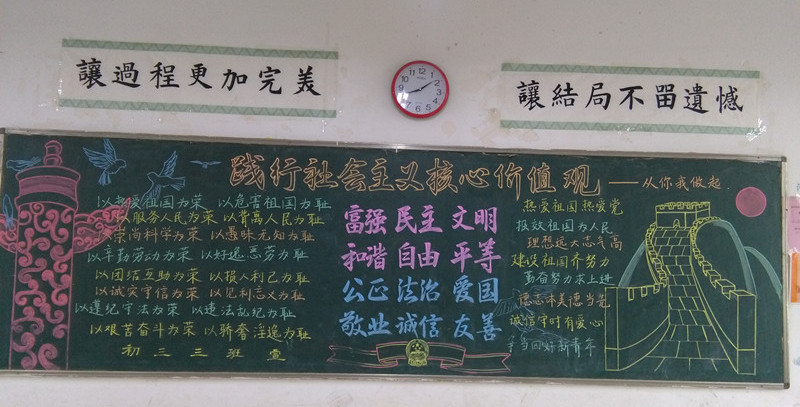 讓過程更加完美
讓結局不畱遺憾
践行社会主义核心价值观——从你我做起
以热爱祖国为荣 以危害祖国为耻
以服务人民为荣 以背离人民为耻
崇尚科学为荣 以愚昧无知为耻
以辛勤劳动为荣 以好逸恶劳为耻
以团结互助为荣 以损人利己为耻
以诚实守信为荣 以见利忘义为耻
以遵纪守法为荣 以违法乱纪为耻
以艰苦奋斗为荣 以骄奢淫逸为耻
初三三班宣
富强 民主 文明
和谐 自由 平等
公正 法治 爱国
敬业 诚信 友善
热爱祖国热爱党
报效祖国为人民
理想远大志气高
建设祖国齐努力
勤奋努力求上进
德志体美德当先
诚信守时有爱心
争当四好新青年